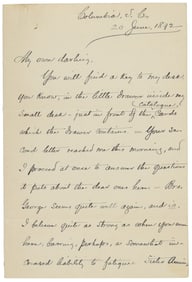 Columbia, S. C.
20 June, 1892
My own darling,
You will find a key to my desk
you know, in the little drawer inside my
catalogue
small desk - just in front of the cards
which the drawer contains. - Your se-
cond letter reached me this morning, and
I proceed at once to answer the questions
it puts about the dear ones here - Bro.
George seems quite well again, and is
I believe quite as strong as when you saw
him, having, perhaps, a somewhat in-
creased liability to fatigue. Sister Annie